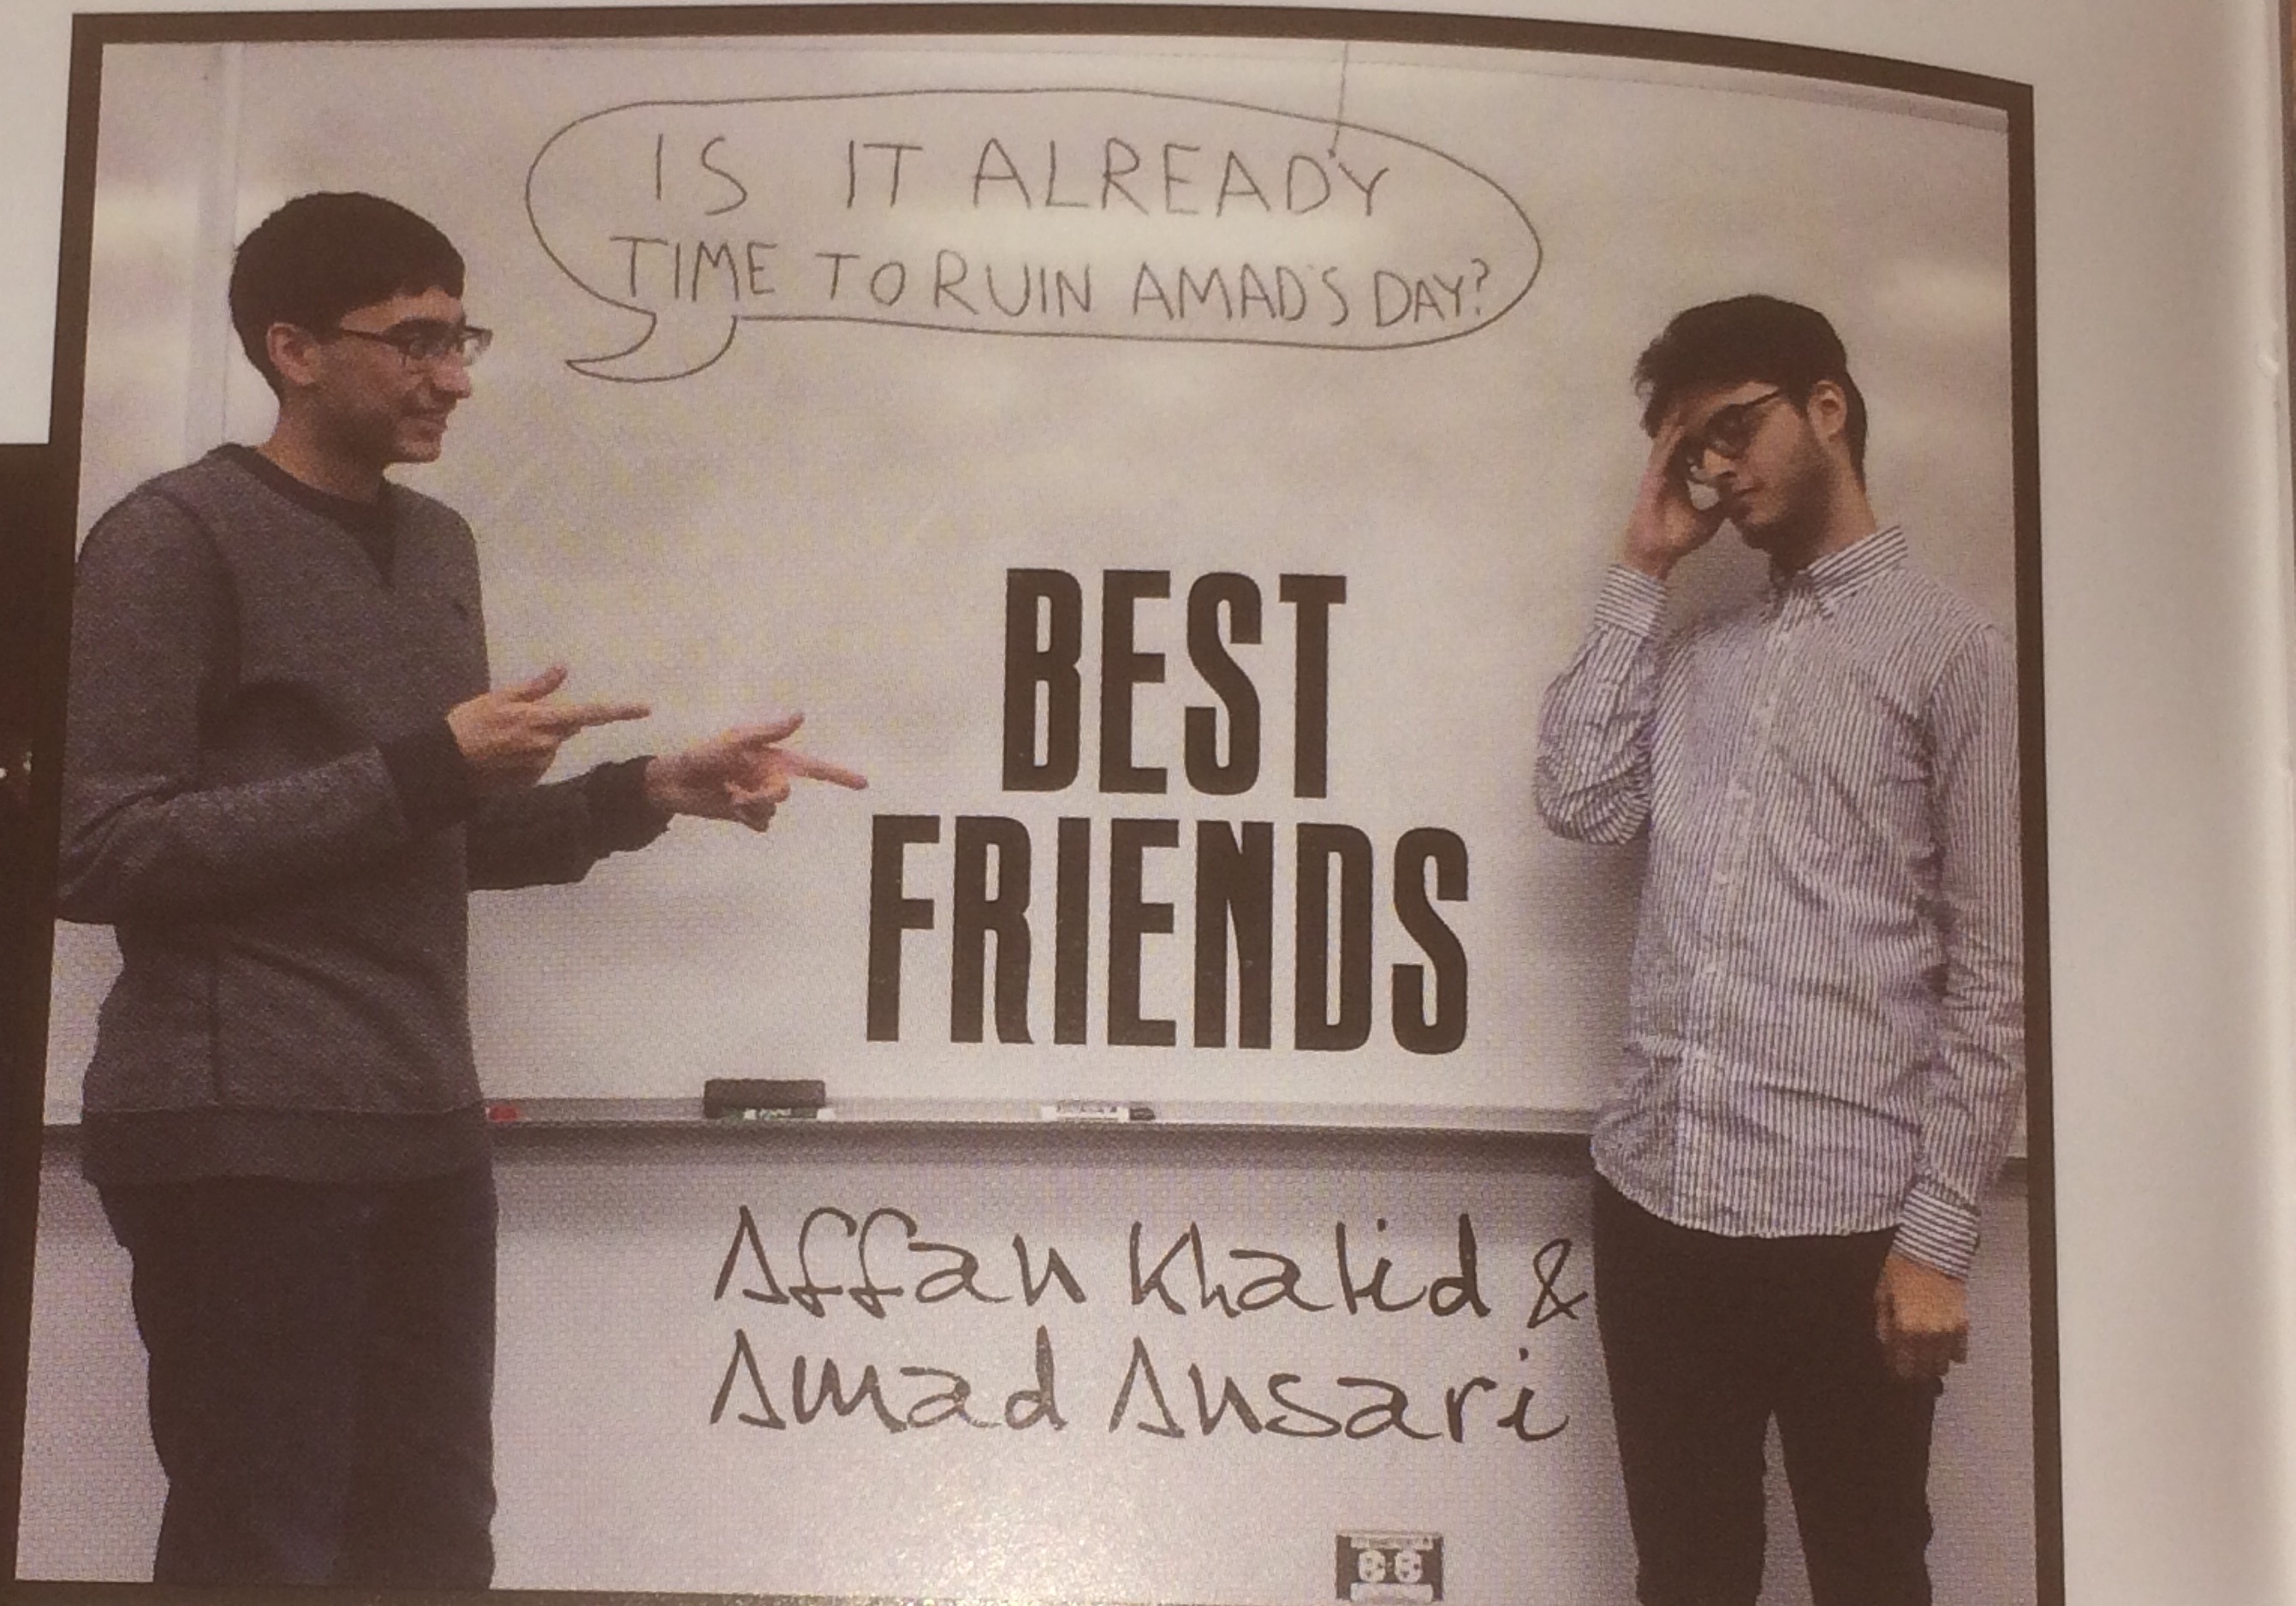 IS IT ALREADY
TIME TO RUIN AMAD'S DAY?
BEST
FRIENDS
Affan Khalid &
Amad Ansari